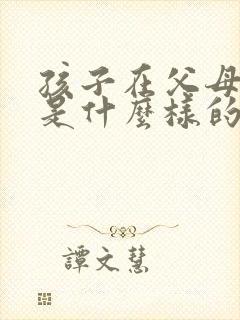 孩子在父母
是什麼樣的
譚文慧